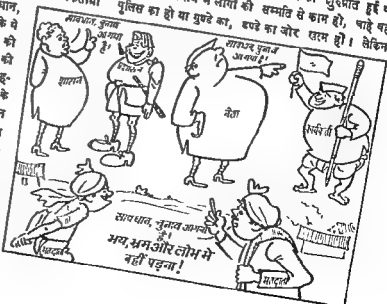 लोगों की सम्मति से काम हो, चाहे वह
पुलिस का हो या गुण्डे का, डण्डे का जोर खत्म हो। लेकिन
सावधान, चुनाव
आ गया
है!
शासन
सावधान चुनाव
आ गया है!
नेता
सावधान, चुनाव आ गया
है!
भय, भ्रम और लोभ में
नहीं पड़ना!
मतदाता
मतदाता